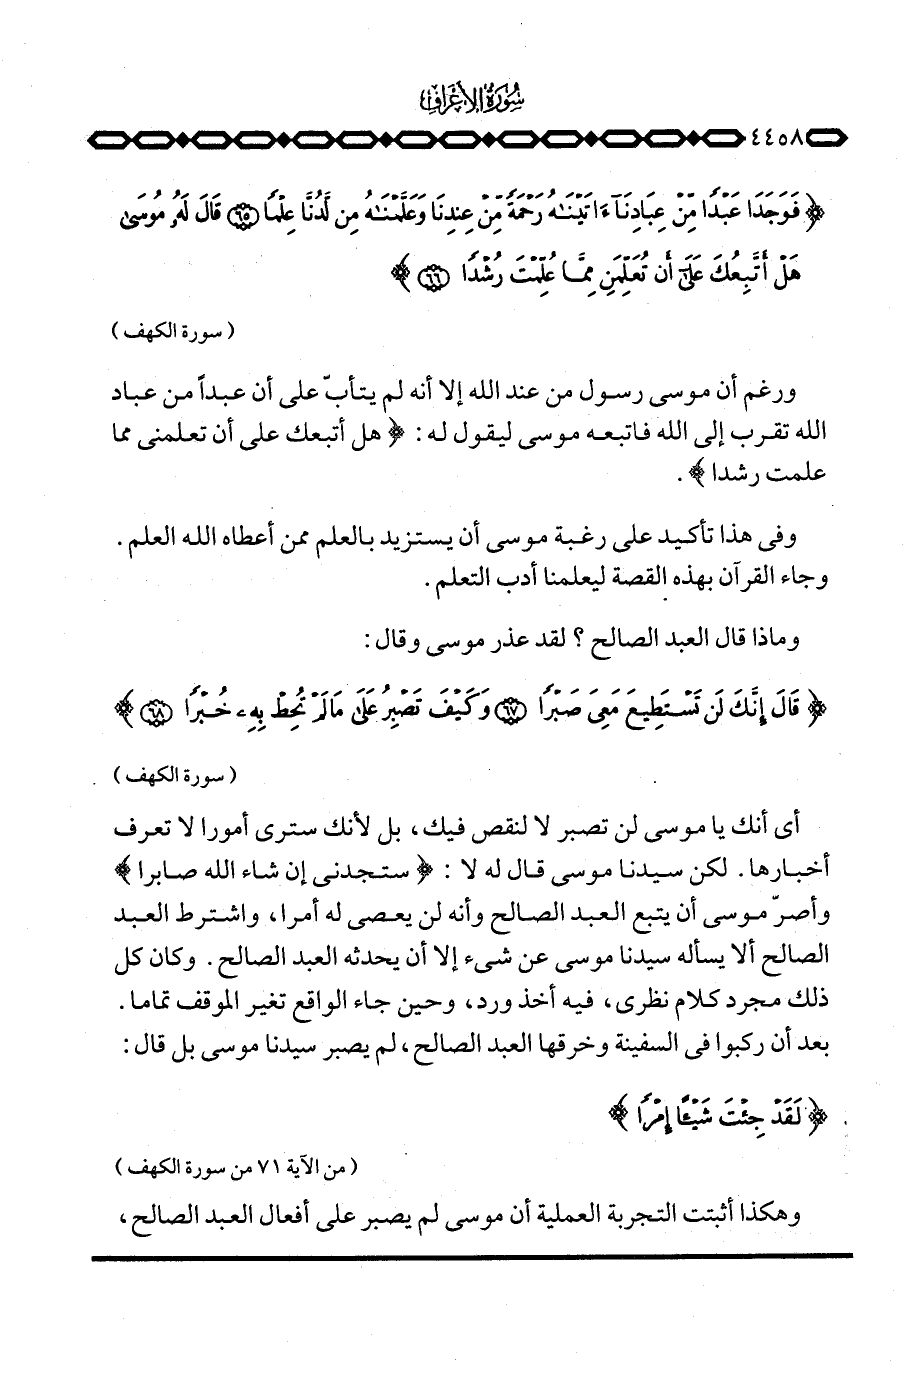 سورة الأعراف
٤٤٥٨
﴿ فَوَجَدَا عَبْدًا مِّنْ عِبَادِنَآ ءَاتَيْنَٰهُ رَحْمَةً مِّنْ عِندِنَا وَعَلَّمْنَٰهُ مِن لَّدُنَّا عِلْمًا ٦٥ قَالَ لَهُۥ مُوسَىٰ
هَلْ أَتَّبِعُكَ عَلَىٰٓ أَن تُعَلِّمَنِ مِمَّا عُلِّمْتَ رُشْدًا ٦٦ ﴾
( سورة الكهف )
ورغم أن موسى رسول من عند الله إلا أنه لم يتأبّ على أن عبداً من عباد
الله تقرب إلى الله فاتبعه موسى ليقول له : ﴿ هل أتبعك على أن تعلمنى مما
علمت رشدا ﴾ .
وفى هذا تأكيد على رغبة موسى أن يستزيد بالعلم ممن أعطاه الله العلم .
وجاء القرآن بهذه القصة ليعلمنا أدب التعلم .
وماذا قال العبد الصالح ؟ لقد عذر موسى وقال :
﴿ قَالَ إِنَّكَ لَن تَسْتَطِيعَ مَعِىَ صَبْرًا ٦٧ وَكَيْفَ تَصْبِرُ عَلَىٰ مَا لَمْ تُحِطْ بِهِۦ خُبْرًا ٦٨ ﴾
( سورة الكهف )
أى أنك يا موسى لن تصبر لا لنقص فيك ، بل لأنك سترى أمورا لا تعرف
أخبارها . لكن سيدنا موسى قال له لا : ﴿ ستجدنى إن شاء الله صابرا ﴾
وأصرّ موسى أن يتبع العبد الصالح وأنه لن يعصى له أمرا ، واشترط العبد
الصالح ألا يسأله سيدنا موسى عن شىء إلا أن يحدثه العبد الصالح . وكان كل
ذلك مجرد كلام نظرى ، فيه أخذ ورد ، وحين جاء الواقع تغير الموقف تماما .
بعد أن ركبوا فى السفينة وخرقها العبد الصالح ، لم يصبر سيدنا موسى بل قال :
﴿ لَقَدْ جِئْتَ شَيْـًٔا إِمْرًا ﴾
( من الآية ٧١ من سورة الكهف )
وهكذا أثبتت التجربة العملية أن موسى لم يصبر على أفعال العبد الصالح ،